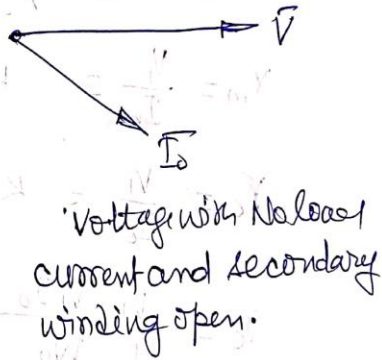 V̄
I̅₀
Voltage with No load
current and secondary
winding open.